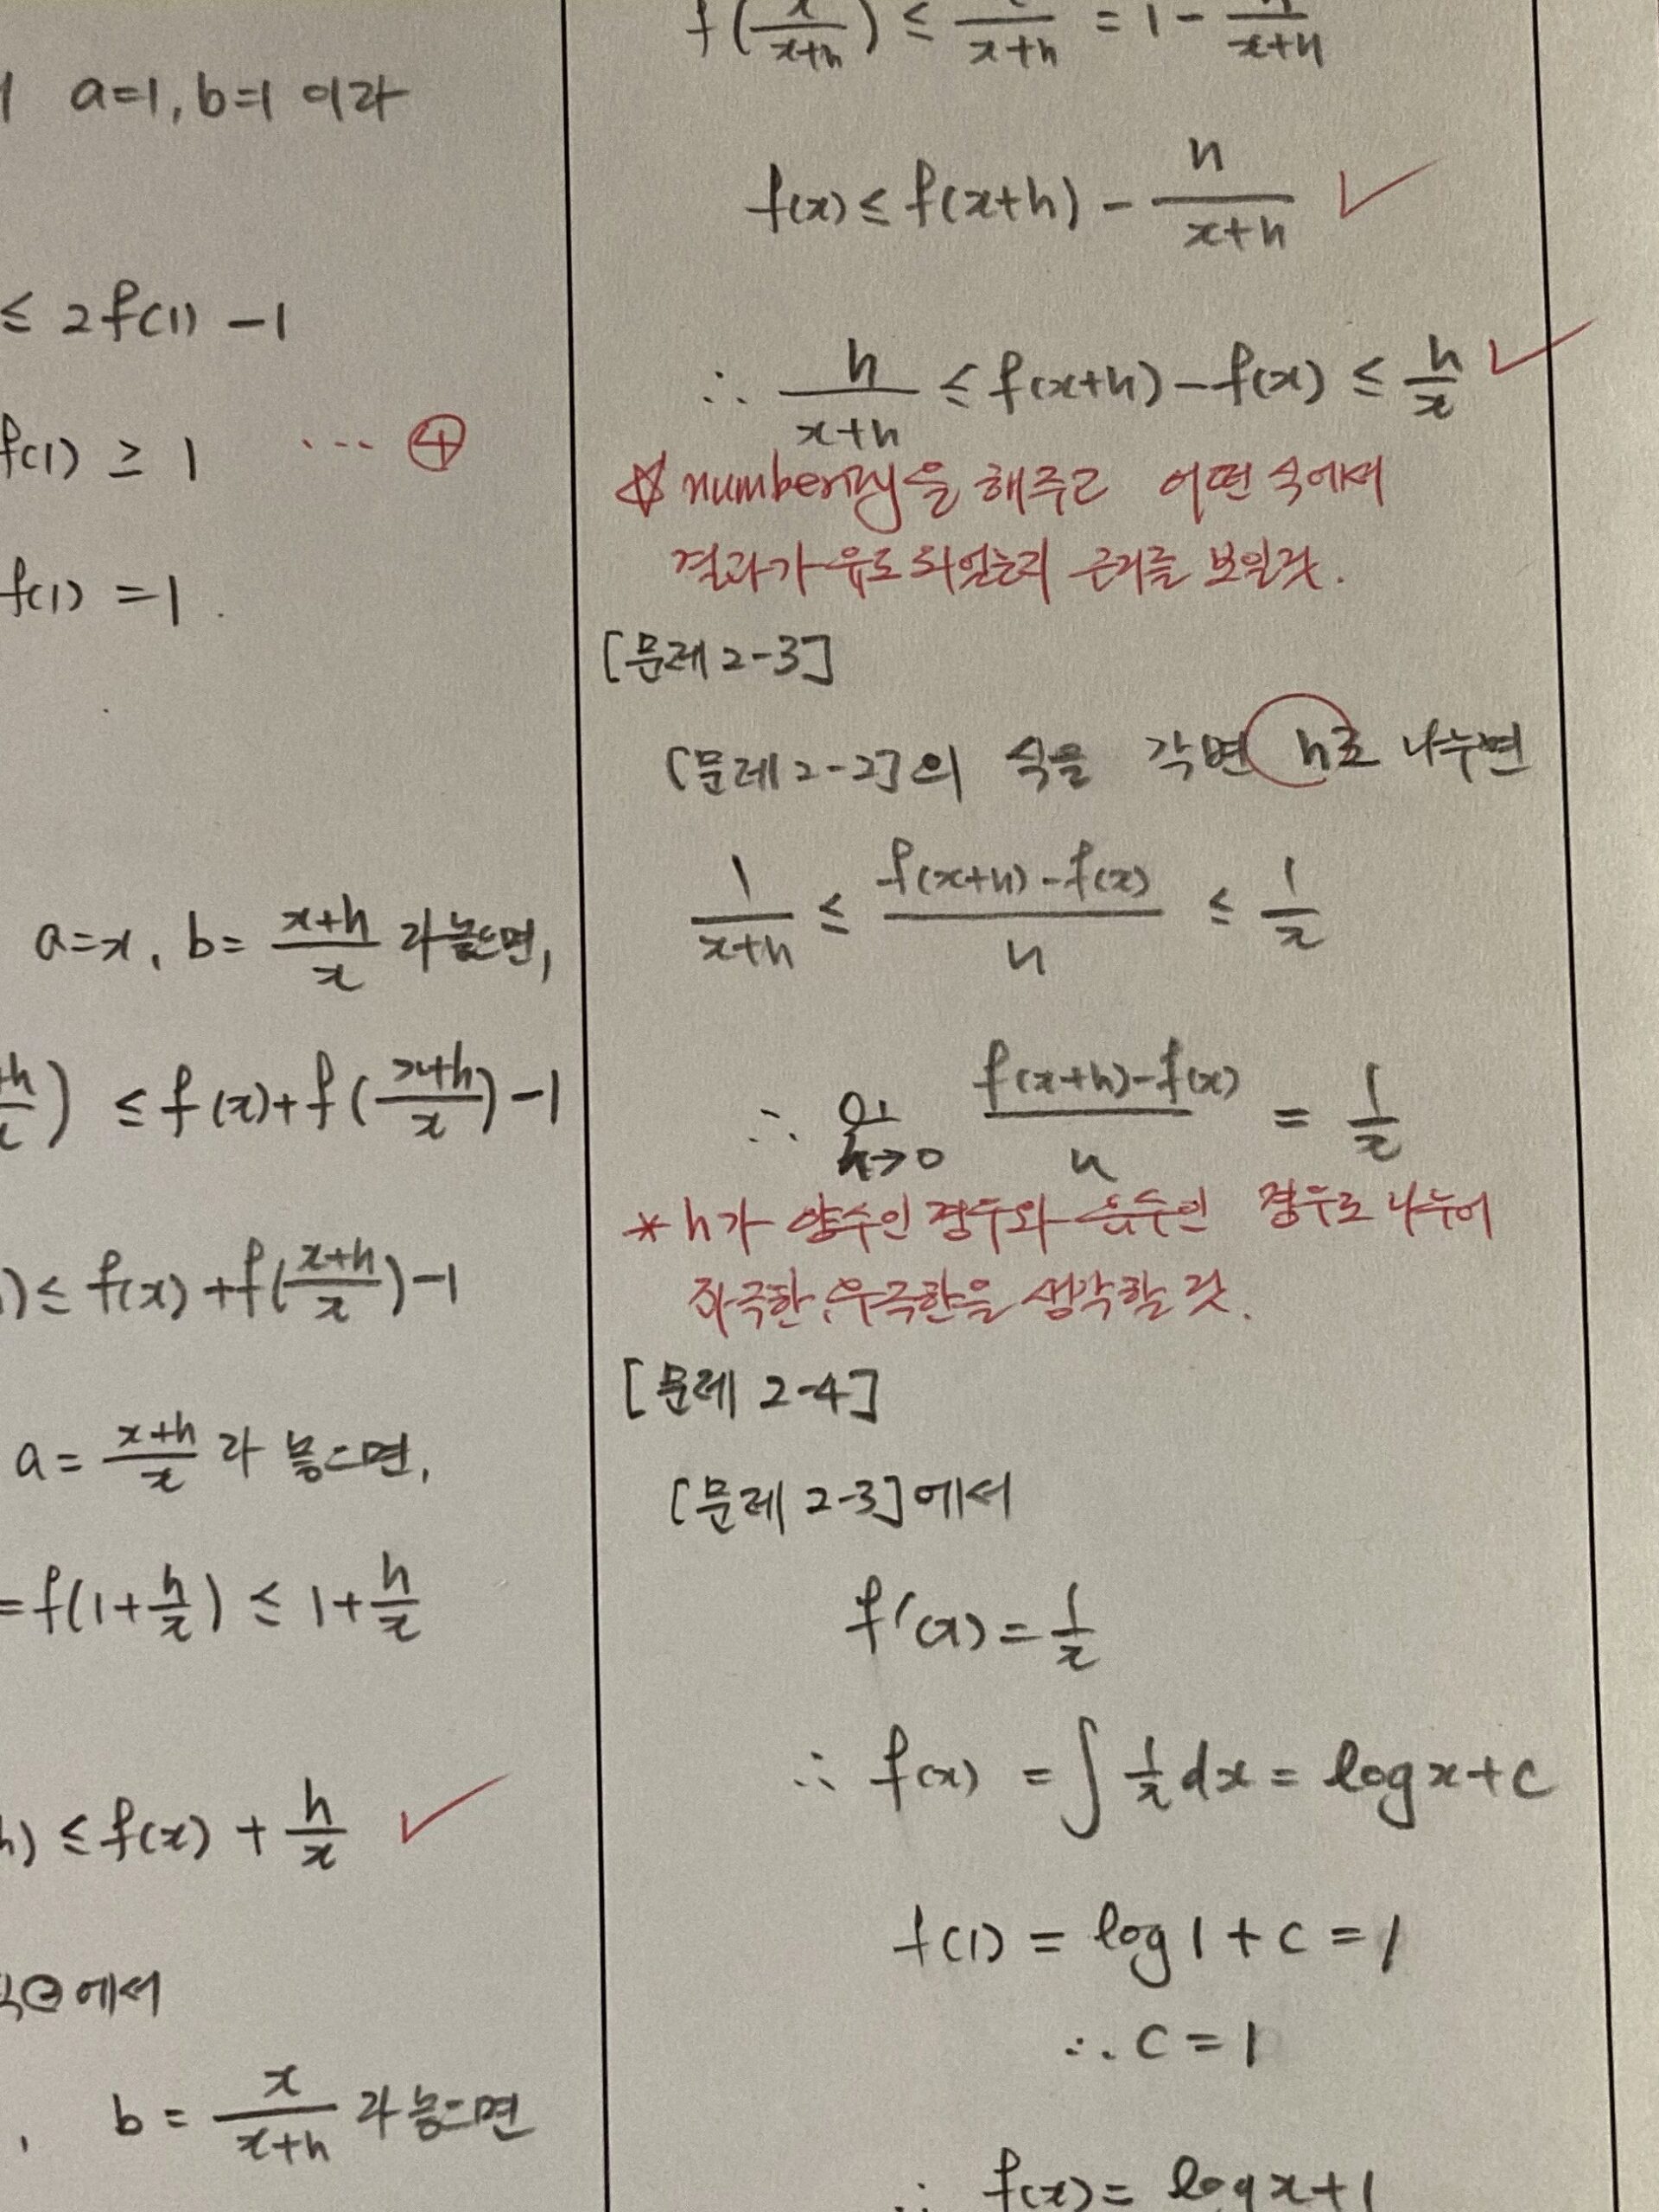 a=1, b=1 이라
≤ 2f(1) -1
f(1) ≥ 1 ... ④
f(1) = 1.
a=x, b= (x+h)/x 라 놓으면,
) ≤ f(x)+f((x+h)/x)-1
) ≤ f(x)+f((x+h)/x)-1
a= (x+h)/x 라 놓으면,
=f(1+h/x) ≤ 1+h/x
h) ≤ f(x) + h/x ✓
에서
, b = x/(x+h) 라 놓으면
f(x/(x+h)) ≤ x/(x+h) = 1 - h/(x+h)
f(x) ≤ f(x+h) - h/(x+h) ✓
∴ h/(x+h) ≤ f(x+h)-f(x) ≤ h/x ✓
☆ numbering을 해주고 어떤 식에서
결과가 유도되었는지 근거를 보일것.
[문제 2-3]
[문제 2-2]의 식을 각변 h로 나누면
1/(x+h) ≤ (f(x+h)-f(x))/h ≤ 1/x
∴ lim h→0 (f(x+h)-f(x))/h = 1/x
* h가 양수인 경우와 음수인 경우로 나누어
좌극한, 우극한을 생각할 것.
[문제 2-4]
[문제 2-3]에서
f'(x) = 1/x
∴ f(x) = ∫ 1/x dx = log x + c
f(1) = log 1 + c = 1
∴ c = 1
∴ f(x) = log x + 1